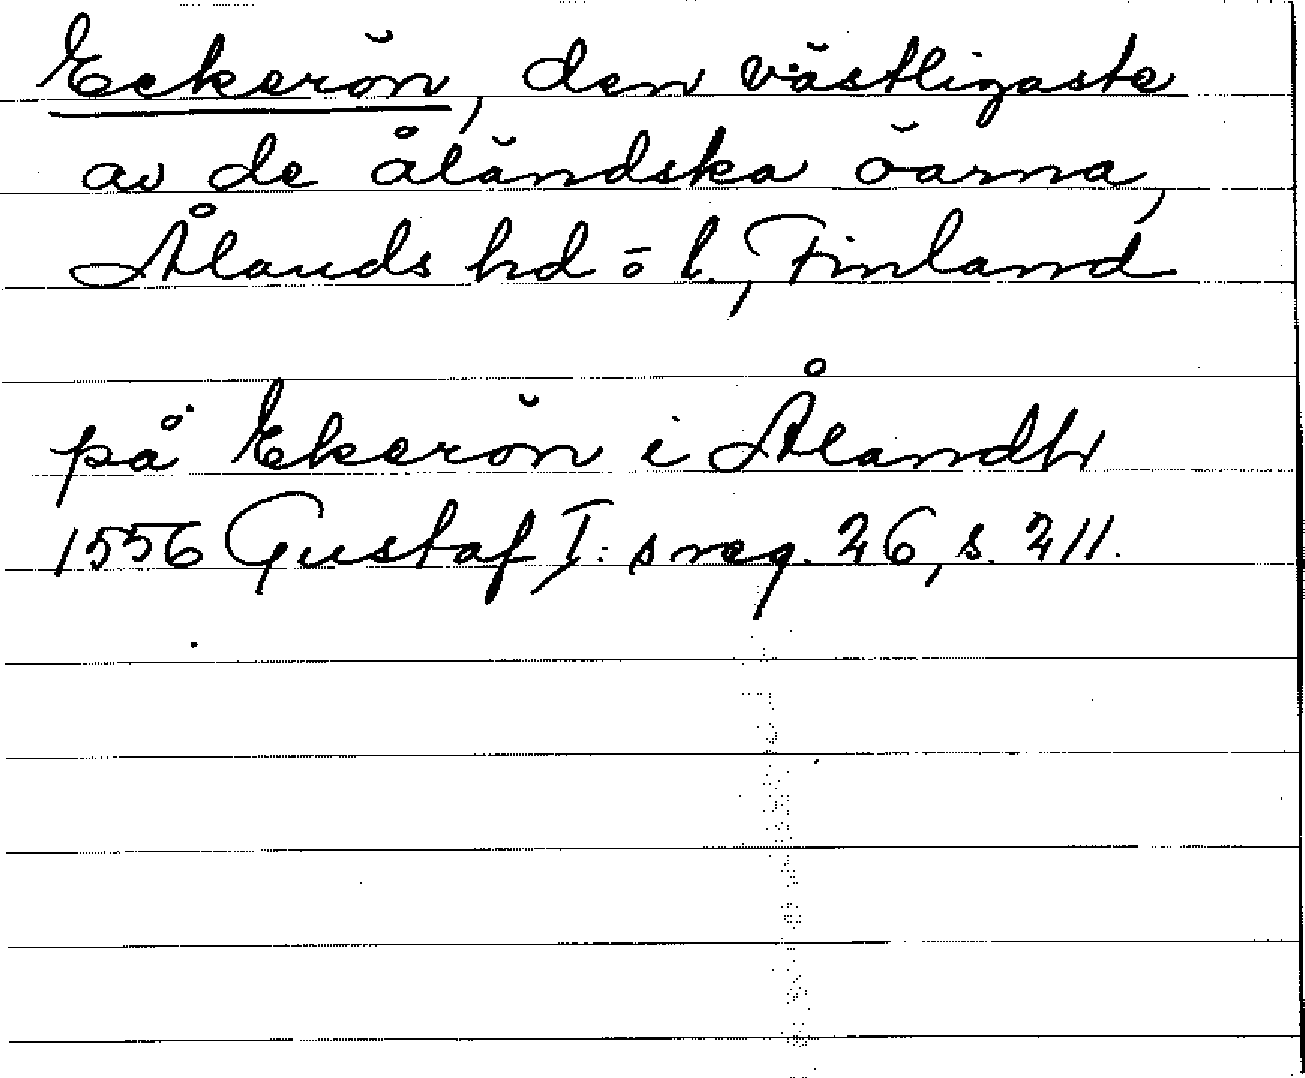 Eckerön, den västligaste
av de åländska öarna,
Ålands hd o l., Finland
på Ekerön i Ålandh
1556 Gustaf I:s reg. 26, s. 211.